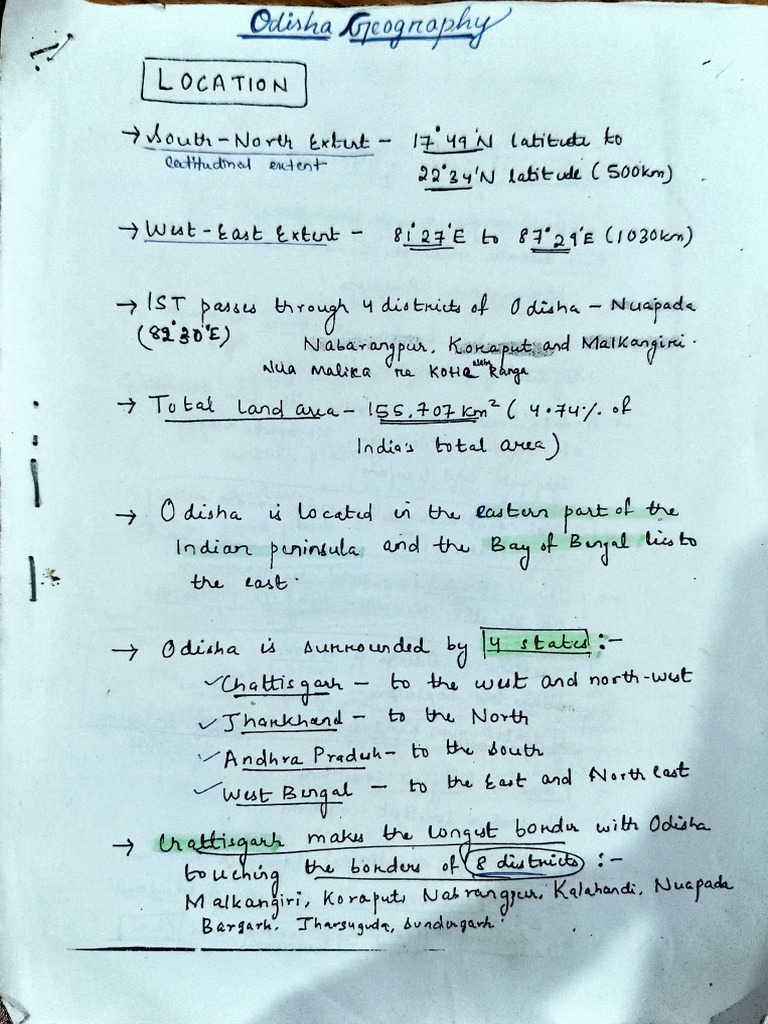 Odisha Geography
LOCATION
→ South-North Extent - 17°49'N latitude to
latitudinal extent
22°34'N latitude (500km)
→ West-East Extent - 81°27'E to 87°29'E (1030km)
→ IST passes through 4 districts of Odisha - Nuapada
(82°30'E) Nabarangpur, Koraput and Malkangiri.
Nua Malika ra Kotia Naba Ranga
→ Total land area - 155,707 km² (4.74% of
India's total area)
→ Odisha is located in the eastern part of the
Indian peninsula and the Bay of Bengal lies to
the east.
→ Odisha is surrounded by 4 states :-
✓ Chattisgarh - to the west and north-west
✓ Jharkhand - to the North
✓ Andhra Pradesh - to the south
✓ West Bengal - to the East and North east
→ Chattisgarh makes the longest border with Odisha
touching the borders of 8 districts :-
Malkangiri, Koraput, Nabrangpur, Kalahandi, Nuapada
Bargarh, Jharsuguda, Sundurgarh.